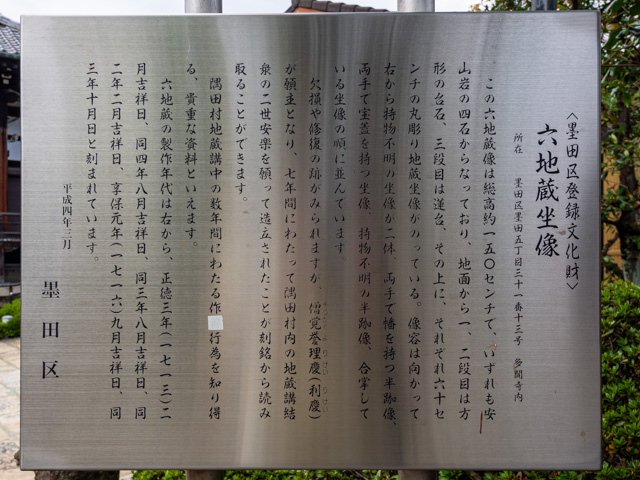 〈墨田区登録文化財〉
六地蔵坐像
所在　墨田区墨田五丁目三十一番十三号　多聞寺内
この六地蔵像は総高約一五〇センチで、いずれも安
山岩の四石からなっており、地面から一、二段目は方
形の台石、三段目は蓮台、その上に、それぞれ六十セ
ンチの丸彫り地蔵坐像がのっている。像容は向かって
右から持物不明の坐像が二体、両手で幡を持つ半跏像、
両手で宝蓋を持つ坐像、持物不明の半跏像、合掌して
いる坐像の順に並んでいます。
欠損や修復の跡がみられますが、僧覚誉理慶(利慶)
が願主となり、七年間にわたって隅田村内の地蔵講結
衆の二世安楽を願って造立されたことが刻銘から読み
取ることができます。
隅田村地蔵講中の数年間にわたる作行為を知り得
る、貴重な資料といえます。
六地蔵の製作年代は右から、正徳三年(一七一三)二
月吉祥日、同四年八月吉祥日、同三年八月吉祥日、同
二年二月吉祥日、享保元年(一七一六)九月吉祥日、同
三年十月日と刻まれています。
平成四年三月
墨田区